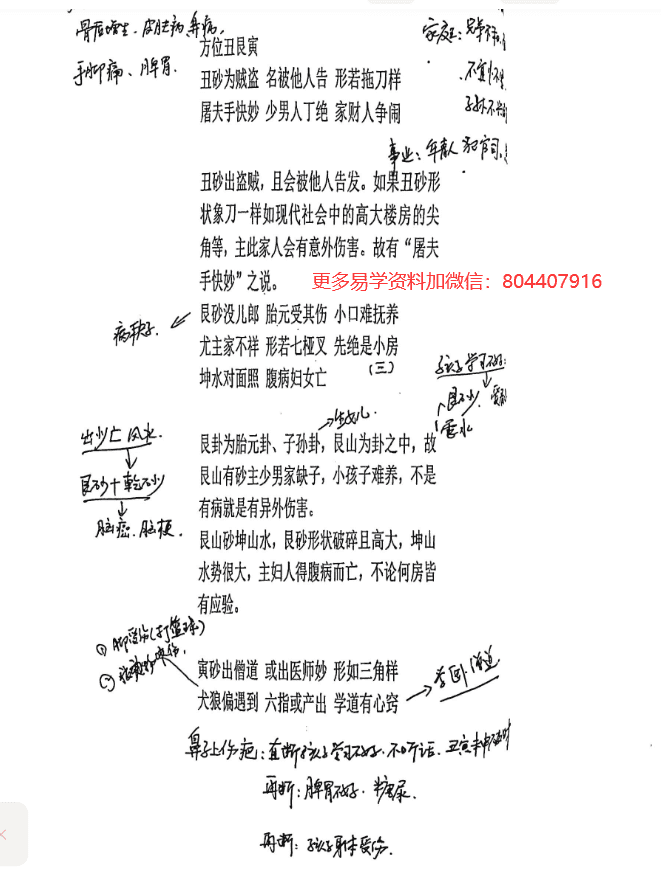 骨质增生.皮肤病.鼻病
手脚痛、脾胃.
家庭:
方位丑艮寅
丑砂为贼盗 名被他人告 形若拖刀样
屠夫手快妙 少男人丁绝 家财人争闹
事业: 年青人 官司
丑砂出盗贼，且会被他人告发。如果丑砂形
状象刀一样如现代社会中的高大楼房的尖
角等，主此家人会有意外伤害。故有“屠夫
手快妙”之说。
更多易学资料加微信：804407916
艮砂没儿郎 胎元受其伤 小口难抚养
尤主家不祥 形若七桠叉 先绝是小房
坤水对面照 腹病妇女亡
(三)
孩子学习不好:
艮砂.
出少亡风水
艮砂+乾砂
脑癌.脑梗.
艮卦为胎元卦、子孙卦，艮山为卦之中，故
艮山有砂主少男家缺子，小孩子难养，不是
有病就是有异外伤害。
艮山砂坤山水，艮砂形状破碎且高大，坤山
水势很大，主妇人得腹病而亡，不论何房皆
有应验。
①脚受伤(打篮球)
②
寅砂出僧道 或出医师妙 形如三角样
犬狼偏遇到 六指或产出 学道有心窍
鼻子上伤疤:直断孩子学习不好.不听话.
再断:脾胃不好.糖尿.
再断:孩子身体受伤.